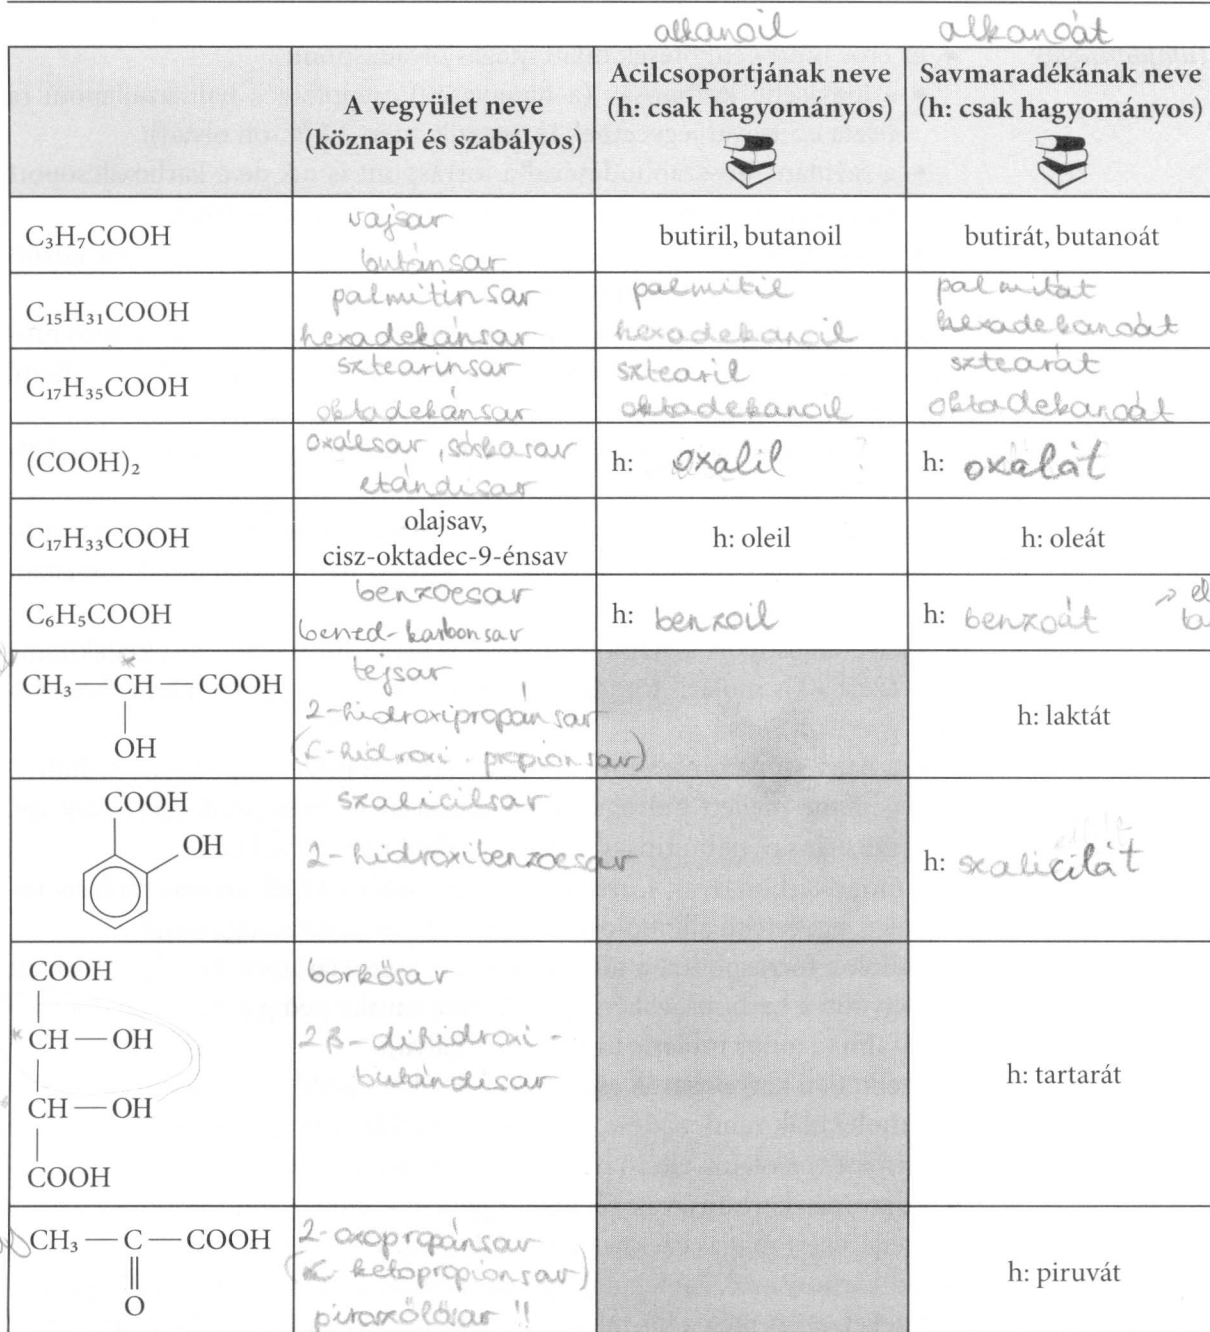 alkanoil alkanoát
A vegyület neve
(köznapi és szabályos)
Acilcsoportjának neve
(h: csak hagyományos)
Savmaradékának neve
(h: csak hagyományos)
C₃H₇COOH
vajsav
butánsav
butiril, butanoil
butirát, butanoát
C₁₅H₃₁COOH
palmitinsav
hexadekánsav
palmitil
hexadekanoil
palmitát
hexadekanoát
C₁₇H₃₅COOH
sztearinsav
oktadekánsav
sztearil
oktadekanoil
sztearát
oktadekanoát
(COOH)₂
oxálsav, sóskasav
etándisav
h: oxalil
h: oxalát
C₁₇H₃₃COOH
olajsav,
cisz-oktadec-9-énsav
h: oleil
h: oleát
C₆H₅COOH
benzoesav
karbonsav
h: benzoil
h: benzoát
CH₃—CH—COOH
OH
tejsav
2-hidroxipropánsav
hidroxi-propionsav)
h: laktát
COOH
OH
szalicilsav
2-hidroxibenzoesav
h: szalicilát
COOH
CH—OH
CH—OH
COOH
borkősav
dihidroxi-
butándisav
h: tartarát
CH₃—C—COOH
O
2-oxopropánsav
(α-ketopropionsav)
piroszőlősav !!
h: piruvát